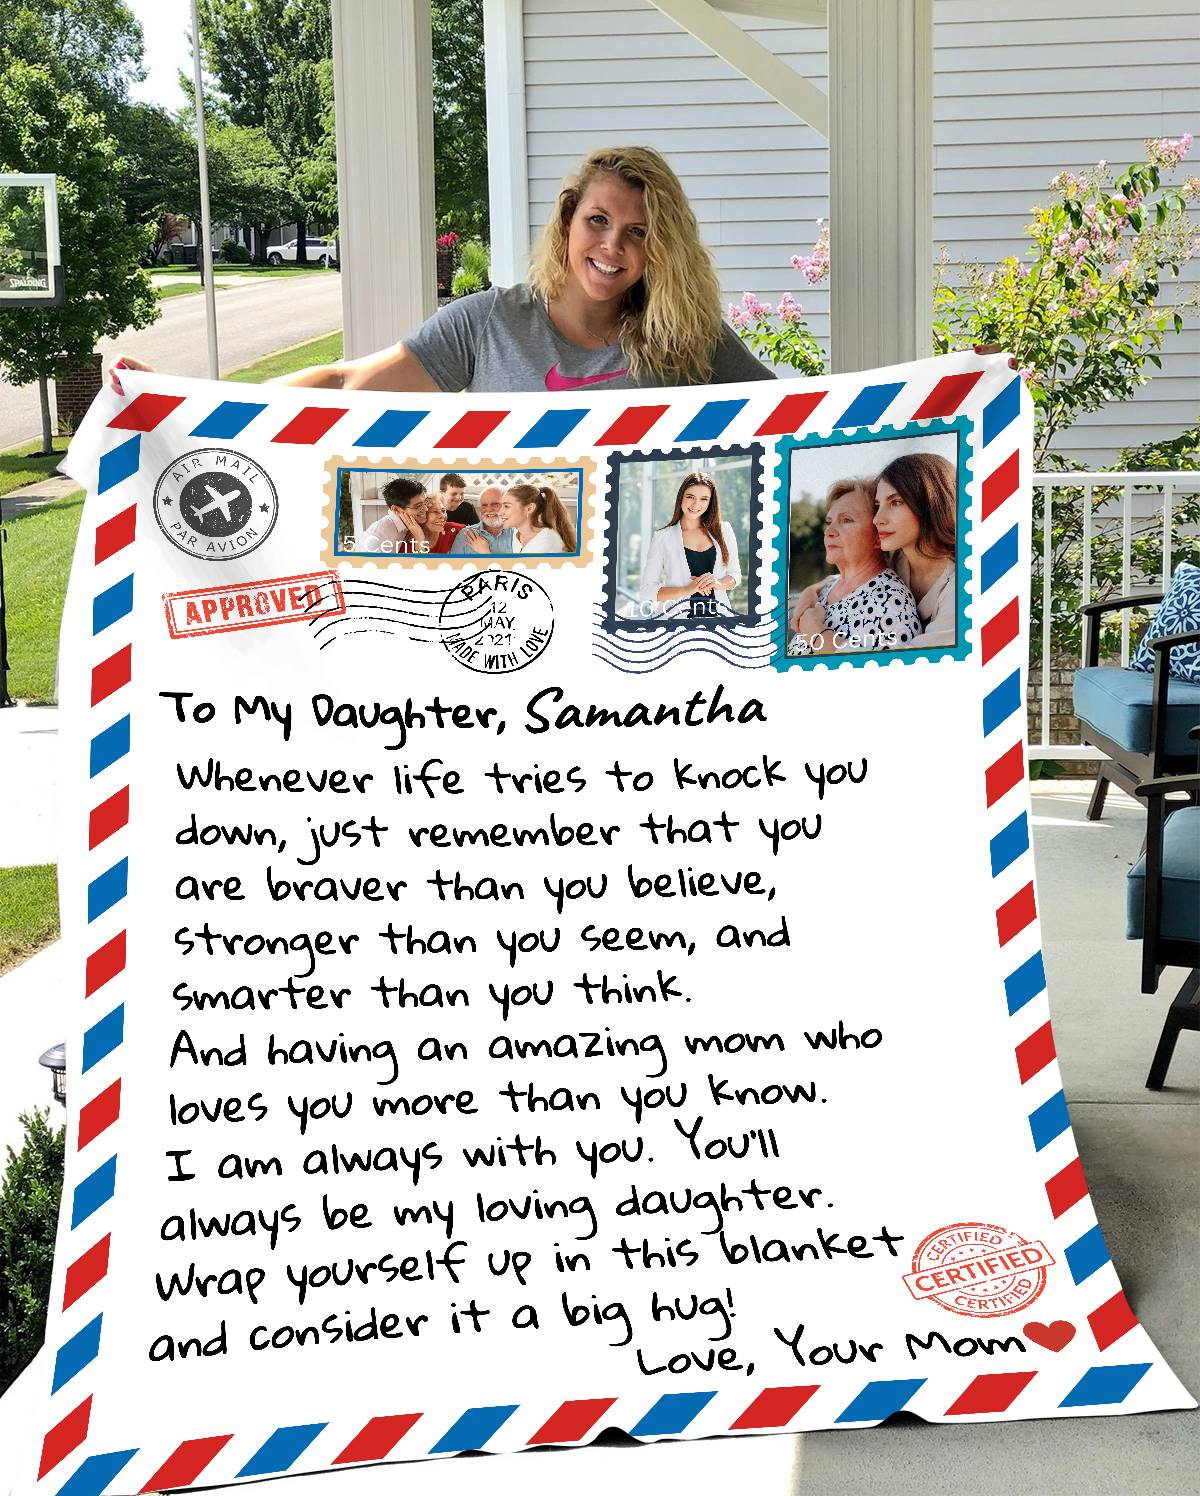 SPALDING
AIR MAIL
PAR AVION
5 Cents
10 Cents
50 Cents
APPROVED
PARIS
12
MAY
2021
MADE WITH LOVE
To My Daughter, Samantha
Whenever life tries to knock you
down, just remember that you
are braver than you believe,
stronger than you seem, and
smarter than you think.
And having an amazing mom who
loves you more than you know.
I am always with you. You'll
always be my loving daughter.
Wrap yourself up in this blanket
and consider it a big hug!
Love, Your Mom
CERTIFIED
CERTIFIED
CERTIFIED